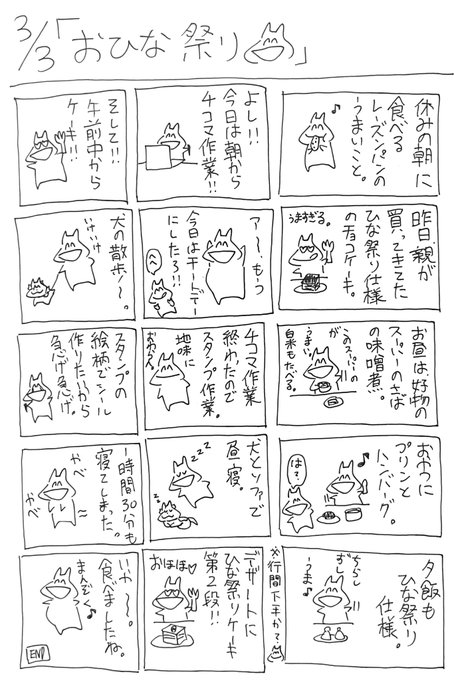 3/3「おひな祭り」
休みの朝に
食べる
レーズンパンの
うまいこと。
♪
よし!!
今日は朝から
チコマ作業!!
そして!!
午前中から
ケーキ!!
昨日、親が
買ってきてた
ひな祭り仕様
のチョコケーキ。
うますぎる。
ア〜、もう
今日はチートデー
にしたろ!!
へへ
犬の散歩〜。
いけいけ
お昼は好物の
スーパーのさば
の味噌煮。
このスーパーの
が
うまい
白米もたべる。
チコマ作業
終わたので
スタンプ作業。
地味に
おわらん
スタンプの
絵柄でシール
作りたいから
急げ急げ。
おやつに
プリンと
ハンバーグ。
♪
は?
犬とソファで
昼寝。
zzz
zz
1時間30分も
寝てしまった。
やべ
やべ
夕飯も
ひな祭り
仕様。
ちらし
ずし
うま♪
※行間下手か?
デザートに
ひな祭りケーキ
第2段!!
おほほ♡
いや〜。
食べましたね。
まんぞく♪
END